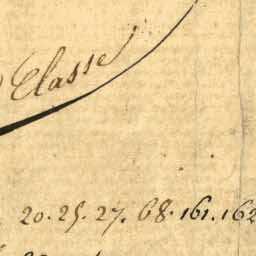 Classe
20. 25. 27. 68. 161. 162